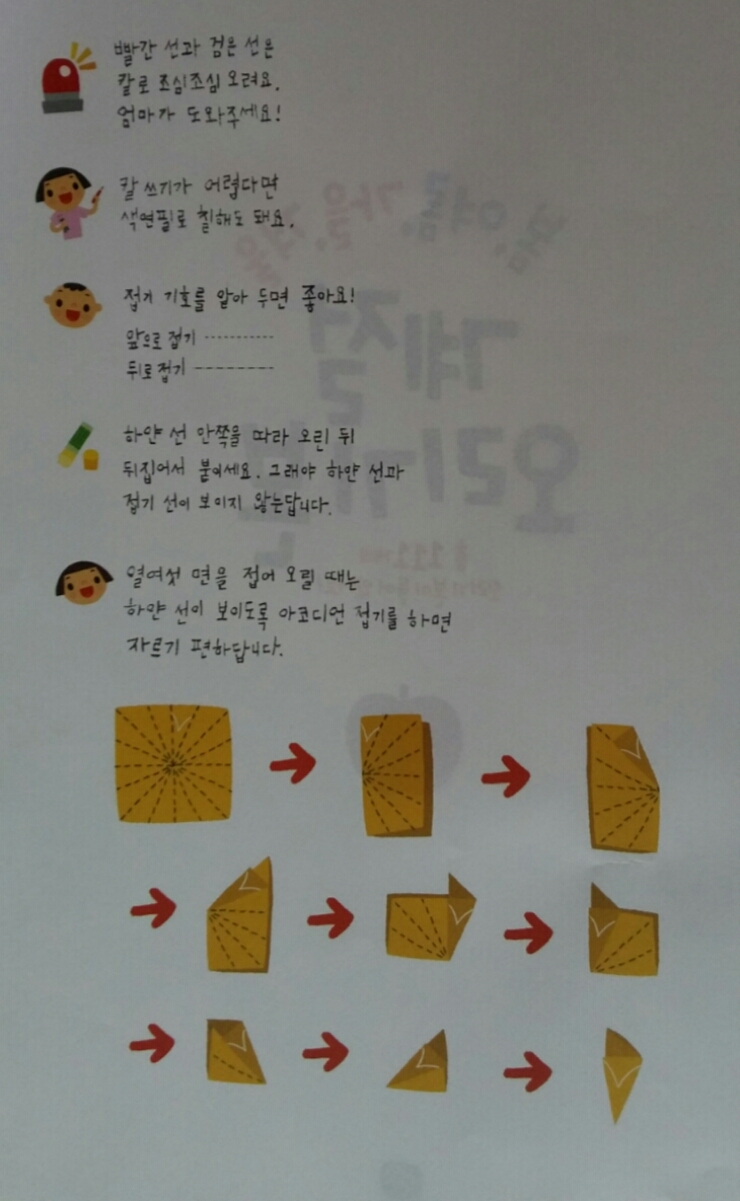 빨간 선과 검은 선은
칼로 조심조심 오려요.
엄마가 도와주세요!
칼 쓰기가 어렵다면
색연필로 칠해도 돼요.
접기 기호를 알아 두면 좋아요!
앞으로 접기
뒤로 접기
하얀 선 안쪽을 따라 오린 뒤
뒤집어서 붙이세요. 그래야 하얀 선과
접기 선이 보이지 않는답니다.
열여섯 면을 접어 오릴 때는
하얀 선이 보이도록 아코디언 접기를 하면
자르기 편하답니다.
봄, 여름, 가을, 겨울
계절
오리기